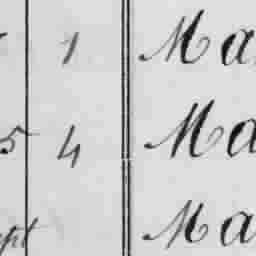 1 Ma
5 4 Ma
pt Ma